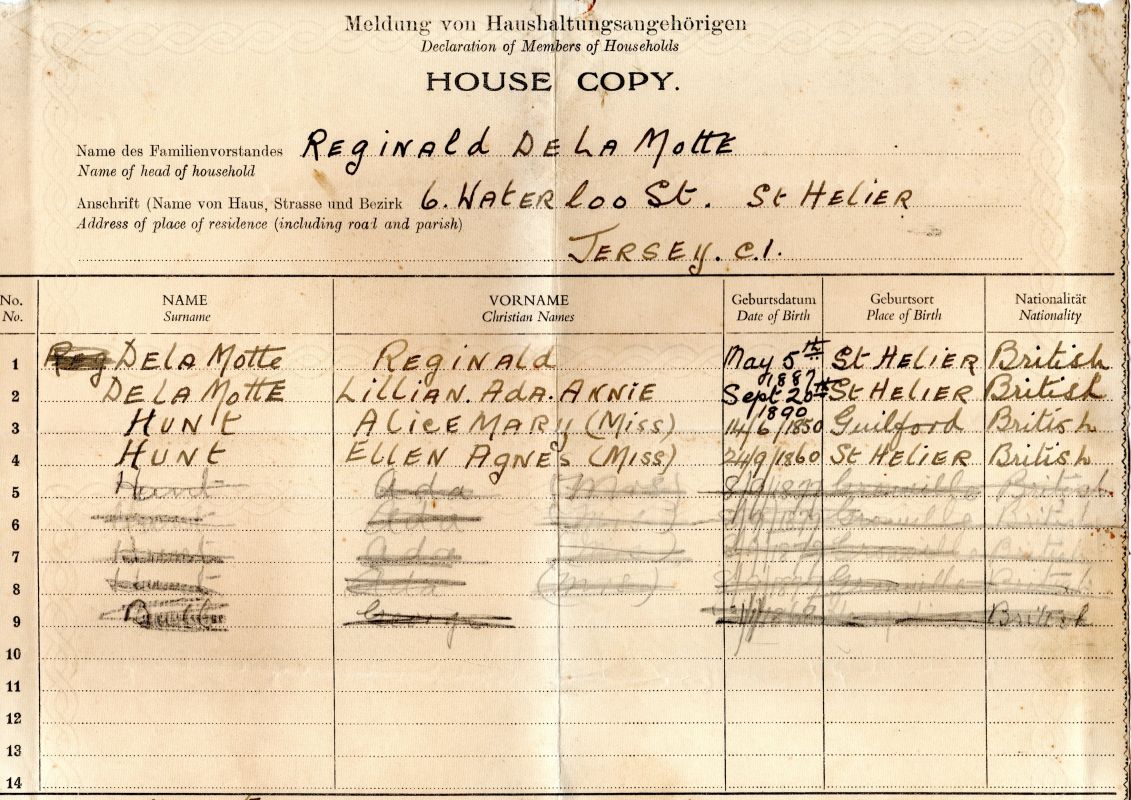 Meldung von Haushaltungsangehörigen
Declaration of Members of Households
HOUSE COPY.
Name des Familienvorstandes Reginald De La Motte
Name of head of household
Anschrift (Name von Haus, Strasse und Bezirk 6. Waterloo St. St Helier
Address of place of residence (including road and parish)
Jersey. C.I.
No. NAME VORNAME Geburtsdatum Geburtsort Nationalität
No. Surname Christian Names Date of Birth Place of Birth Nationality
1 Reg De La Motte Reginald May 5th 1887 St Helier British
2 De La Motte Lillian. Ada. Annie Sept 20th 1890 St Helier British
3 Hunt Alice Mary (Miss) 14/6/1850 Guilford British
4 Hunt Ellen Agnes (Miss) 24/9/1860 St Helier British
5 Hunt Ada (Mrs) Granville British
6 Hunt Ada (Mrs) Granville British
7 Hunt Ada (Mrs) Granville British
8 Hunt Ada (Mrs) Granville British
9 British
10
11
12
13
14